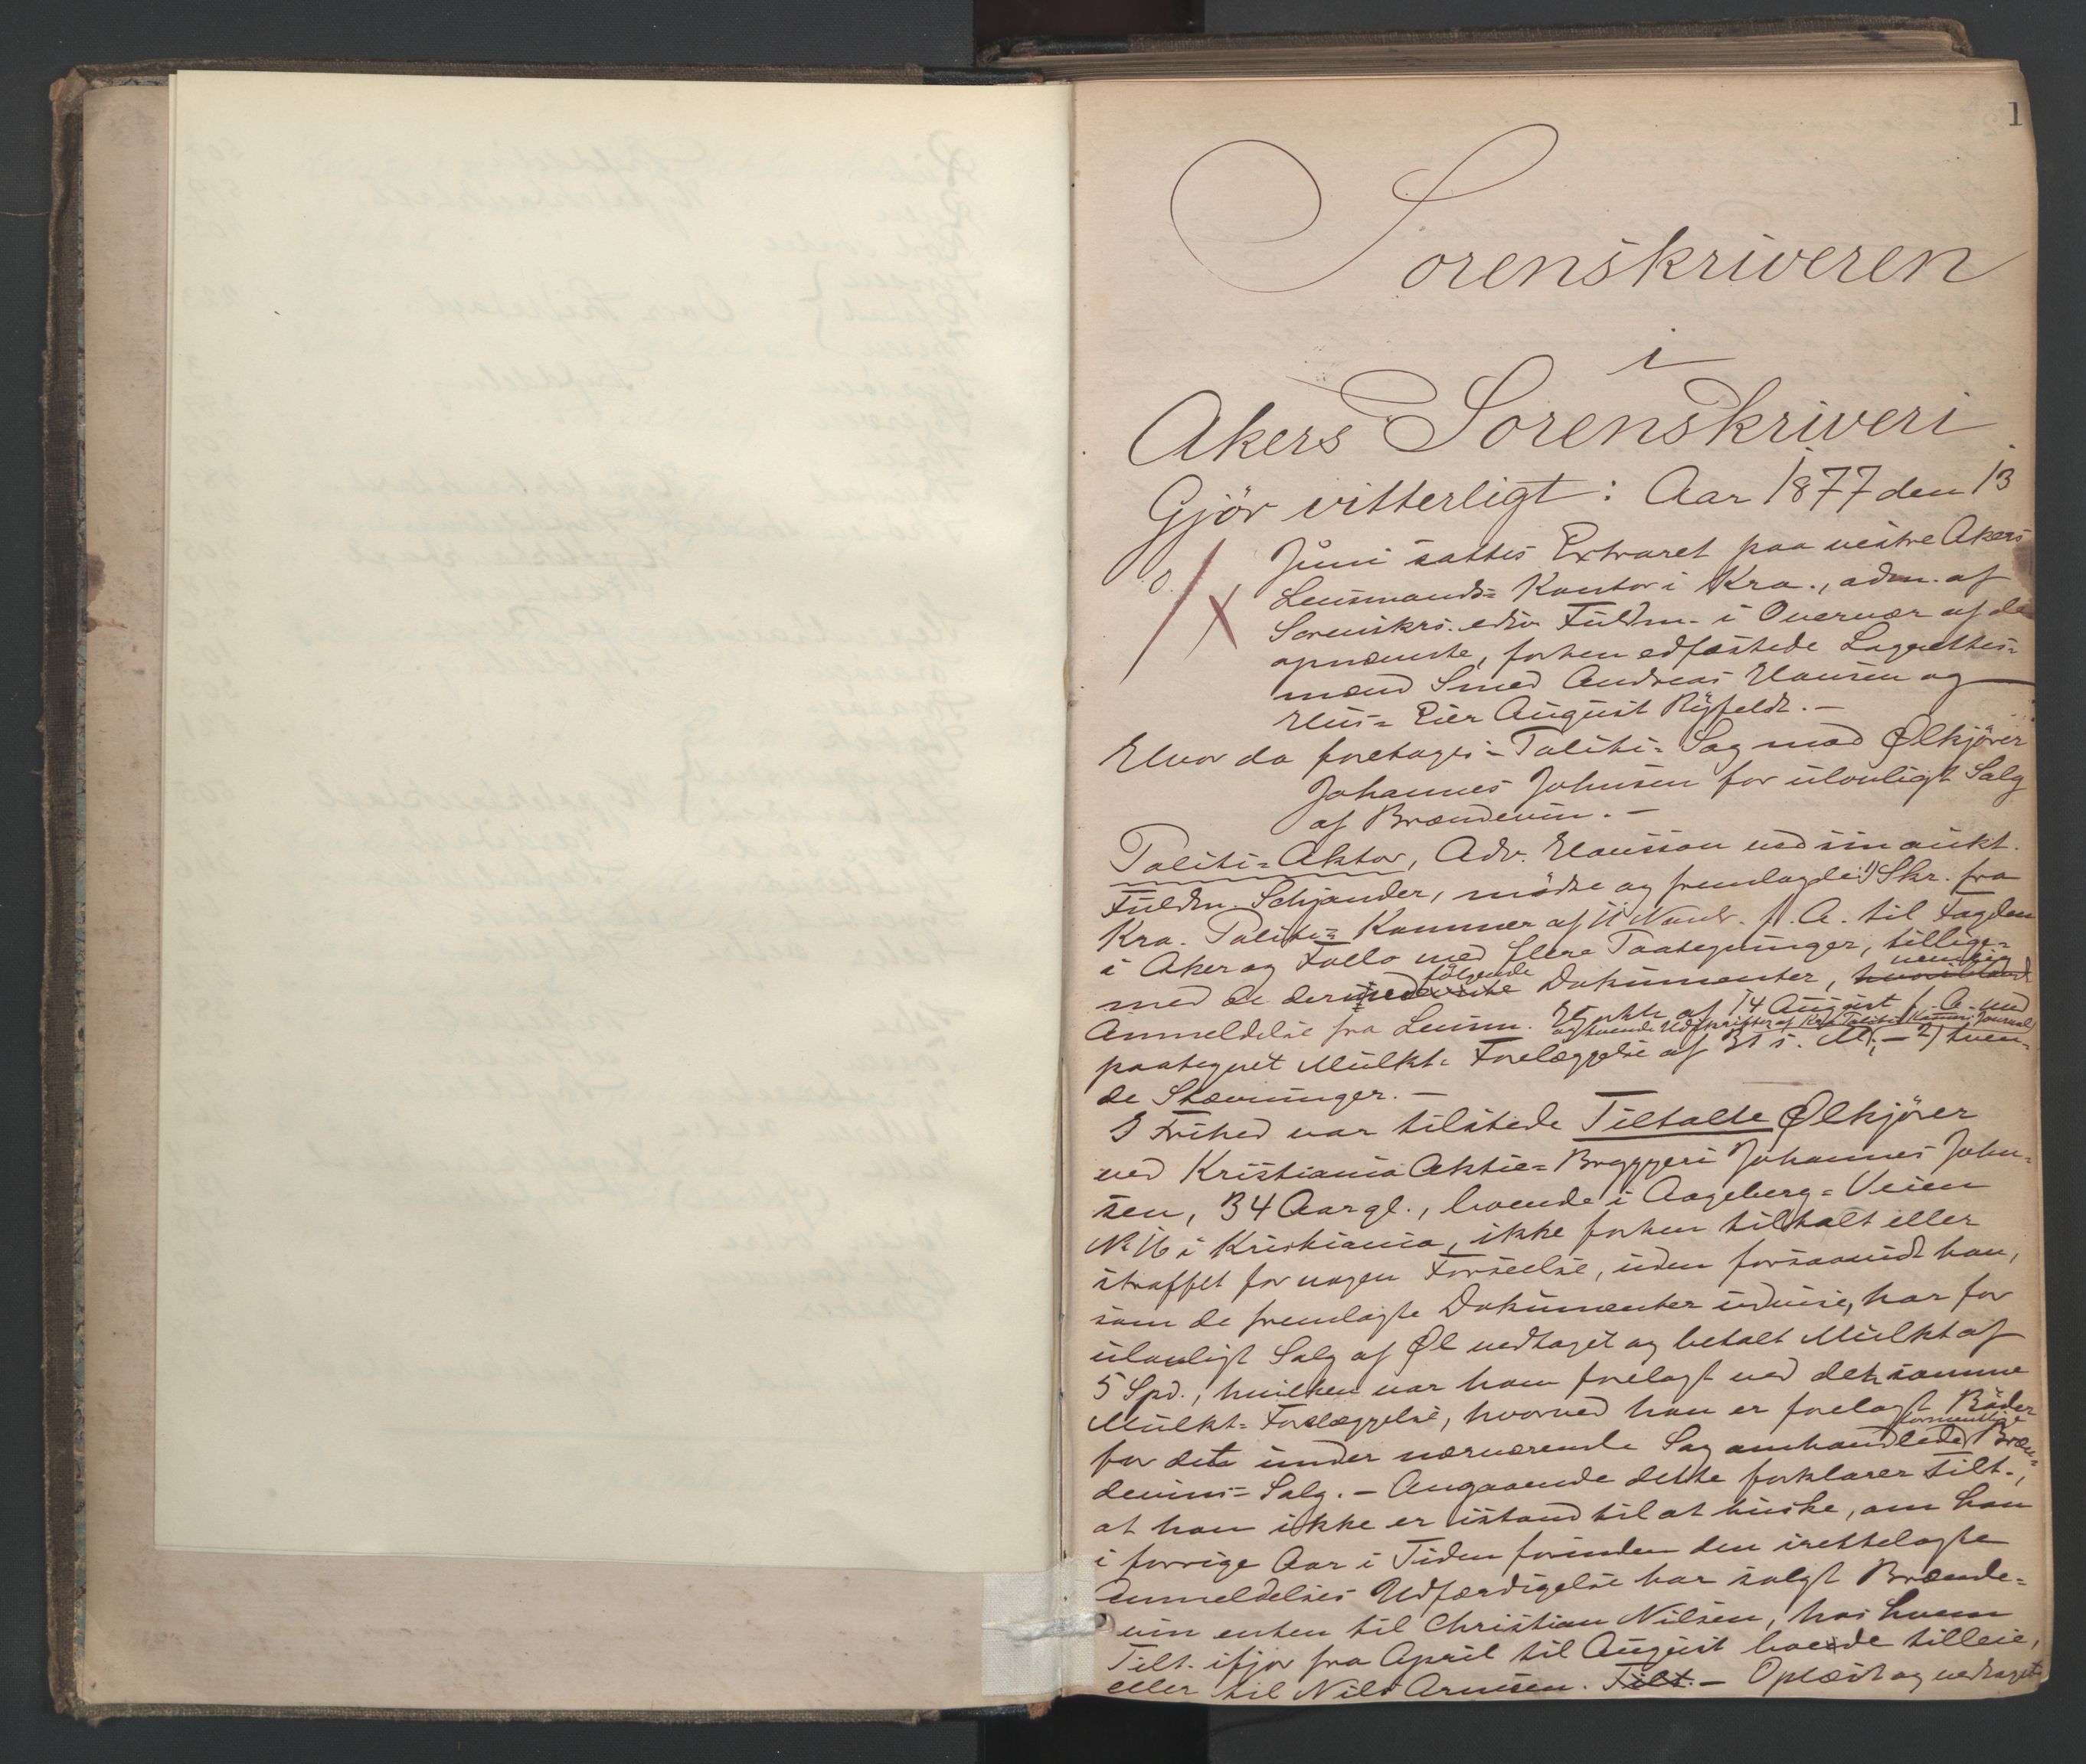 1
Sorenskriveren
i
Akers Sorenskriveri
Gjör vitterligt: Aar 1877 den 13
Juni sattes Extraret paa vestre Akers
Lensmands= Kontor i Kra., adm. af
Sorenskrs. edsv. Fuldm. i Overvær af de
opnævnte, forhen edfæstede Lagrettes=
mænd Smed Andreas Hansen og
Hus= Eier August Ryfeldt. —
Hvor da foretoges = Politi= Sag mod Ølkjörer
Johannes Johnsen for ulovligt Salg
af Brændevin. —
Politi= Aktor, Adv. Hansson ved sin aukt.
Fuldm. Schjander, mödte og fremlagde 1) Skr. fra
Kra. Politi= Kammer af 11 Novbr. f. A. til Fogden
i Aker og Follo med flere Paategninger, tillige=
med de dermed følgende Dokumenter, nemlig
Anmeldelse fra Lensm. af 14 August f. A. med
og tvende Udskrifter af Kra. Politi= Kammers Journal
paategnet Mulkt= Forelæggelse af 31 s. M.; — 2) tven=
de Stævninger. —
I Frihed var tilstede Tiltalte Ølkjörer
ved Kristiania Aktie= Bryggeri Johannes John=
sen, 34 Aar gl., boende i Aageberg= Veien
No 16 i Kristiania, ikke forhen tiltalt eller
straffet for nogen Forseelse, uden forsaavidt han,
som de fremlagte Dokumenter udvise, har for
ulovligt Salg af Øl vedtaget og betalt Mulkt af
5 Spd., hvilken var ham forelagt ved den samme
Mulkt= Forelæggelse, hvorved han er forelagt Böder
for det under nærværende Sag omhandlede formentlige Bræn=
devins= Salg. — Angaaende dette forklarer Tilt.,
at han ikke er istand til at huske, om han
i forrige Aar i Tiden forinden den irettelagte
Anmeldelses Udfærdigelse har solgt Brænde=
vin enten til Christian Nilsen, hos hvem
Tilt. ifjor fra April til August boede tilleie,
eller til Nils Arnesen. Tilt. — Oplæst og vedtaget